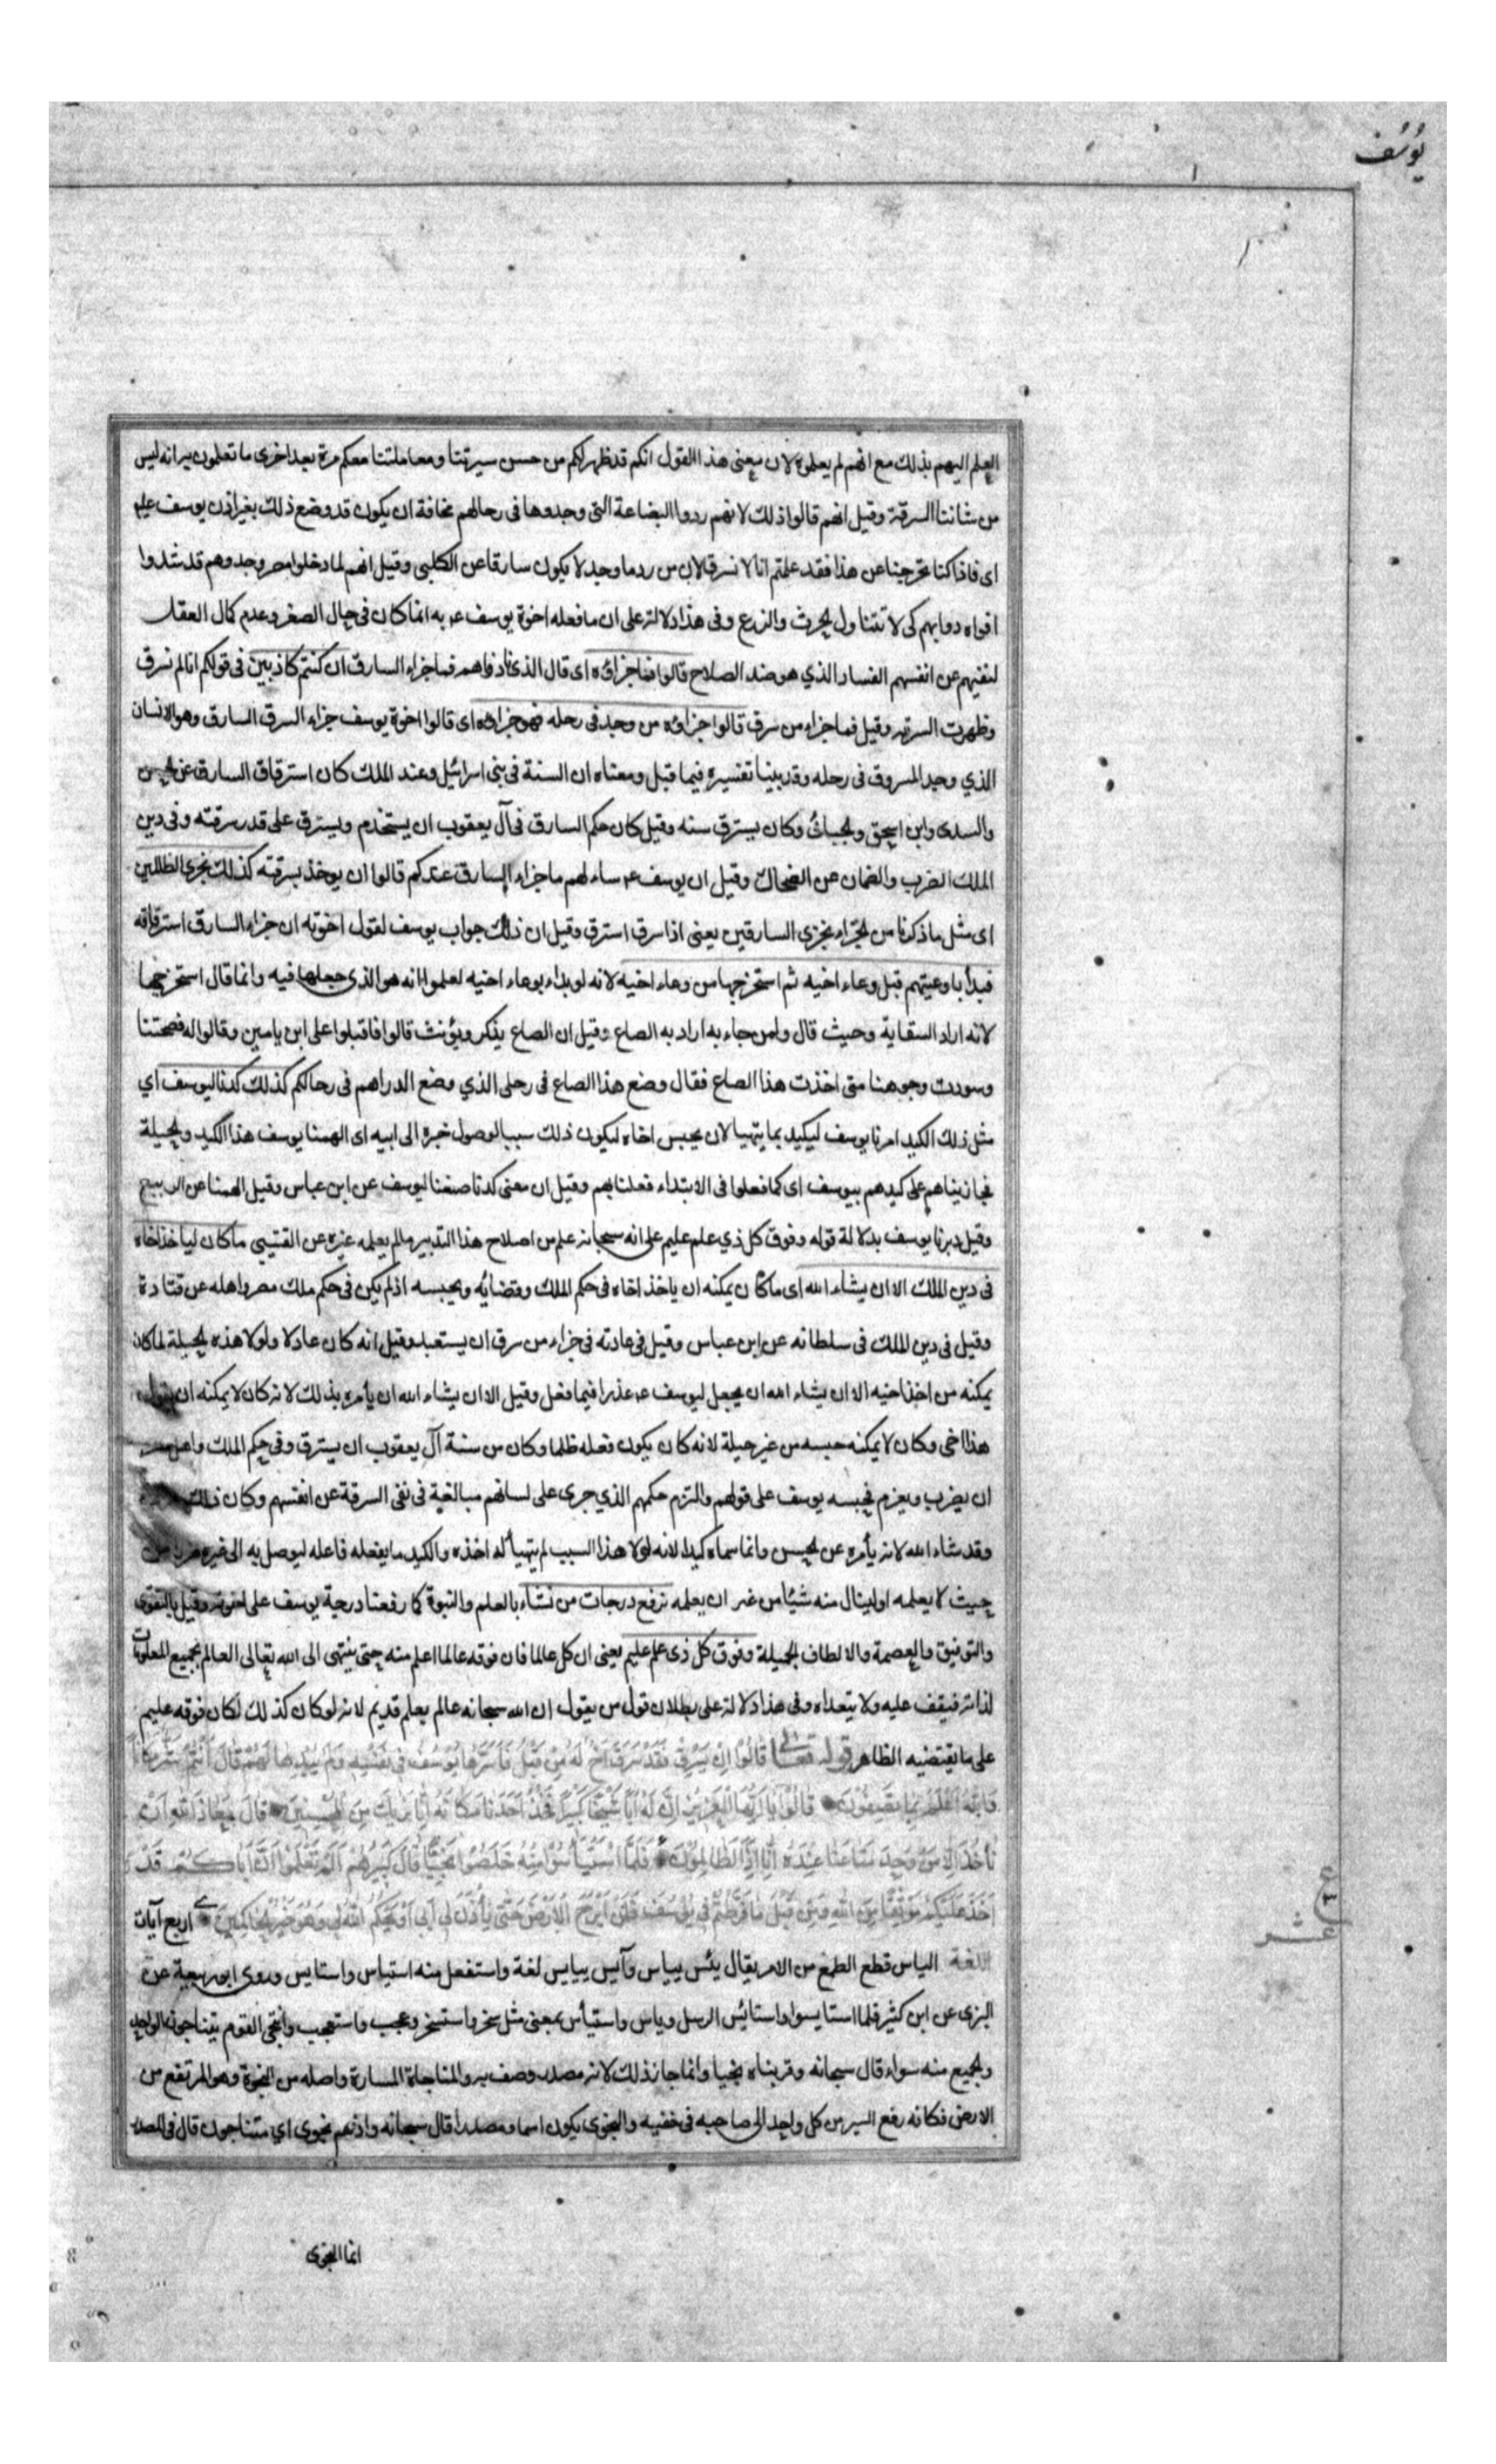 يوسف
العلم اليهم بذلك مع انهم لم يعلموه لان معنى هذا القول انكم قد ظهر لكم من حسن سيرتنا ومعاملتنا معكم مرة بعد اخرى ما تعلمون به انه ليس
من شاننا السرقة وقيل انهم قالوا ذلك لانهم ردوا البضاعة التى وجدوها فى رحالهم مخافة ان يكون قد وضع ذلك بغير اذن يوسف عليه
اى فاذا كنا تحرجنا عن هذا فقد علمتم انا لا نسرق لان من رد ما وجد لا يكون سارقا عن الكلبى وقيل انهم لما دخلوا مصر وجدوهم قد شدوا
افواه دوابهم كى لا تتناول الحرث والزرع وفى هذا دلالة على ان ما فعله اخوة يوسف عه به انما كان فى حال الصغر وعدم كمال العقل
لنفيهم عن انفسهم الفساد الذي هو ضد الصلاح قالوا فما جزاؤه اى قال الذى نادوهم فما جزاء السارق ان كنتم كاذبين فى قولكم انا لم نسرق
وظهرت السرقه وقيل فما جزاء من سرق قالوا جزاؤه من وجد فى رحله فهو جزاؤه اى قالوا اخوة يوسف جزاء السرق السارق وهو الانسان
الذي وجد المسروق فى رحله وقد بينا تفسيره فيما قبل ومعناه ان السنة فى بنى اسرائيل وعند الملك كان استرقاق السارق عن الحسن
والسدى وابن اسحق والجبائى وكان يسترق سنه وقيل كان حكم السارق فى آل يعقوب ان يستخدم ويسترق على قدر سرقته وفى دين
الملك الضرب والضمان عن الضحاك وقيل ان يوسف عه ساءلهم ما جزاء السارق عندكم قالوا ان يوخذ بسرقته كذلك نجزى الظالمين
اى مثل ما ذكرنا من الجزاء نجزى السارقين يعنى اذا سرق استرق وقيل ان ذلك جواب يوسف لقول اخوته ان جزاء السارق استرقاقه
فبدأ باوعيتهم قبل وعاء اخيه ثم استخرجها من وعاء اخيه لانه لو بداء بوعاء اخيه لعلموا انه هو الذى جعلها فيه وانما قال استخرجها
لانه اراد السقاية وحيث قال ولمن جاء به اراد به الصاع وقيل ان الصاع يذكر ويؤنث قالوا فاقبلوا على ابن يامين وقالوا له فضحتنا
وسودت وجوهنا متى اخذت هذا الصاع فقال وضع هذا الصاع فى رحلى الذي وضع الدراهم فى رحالكم كذلك كدنا ليوسف اي
مثل ذلك الكيد امرنا يوسف ليكيد بما يتهيا لان يحبس اخاه ليكون ذلك سببا لوصول خبره الى ابيه اى الهمنا يوسف هذا الكيد والحيلة
فجازيناهم على كيدهم بيوسف اى كما فعلوا فى الابتداء فعلنا بهم وقيل ان معنى كدنا صنعنا ليوسف عن ابن عباس وقيل الهمنا عن الربيع
وقيل دبرنا يوسف بدلالة قوله وفوق كل ذي علم عليم على انه سبحانه علم من اصلاح هذا التدبير مالم يعلمه غيره عن القتيبى ما كان لياخذ اخاه
فى دين الملك الا ان يشاء الله اى ما كان يمكنه ان ياخذ اخاه فى حكم الملك وقضائه ويحبسه اذ لم يكن فى حكم ملك مصر واهله عن قتادة
وقيل فى دين الملك فى سلطانه عن ابن عباس وقيل فى عادته فى جزاء من سرق ان يستعبد وقيل انه كان عادلا ولولا هذه الحيلة لما كان
يمكنه من اخذ اخيه الا ان يشاء الله ان يجعل ليوسف عه عذرا فيما فعل وقيل الا ان يشاء الله ان يأمره بذلك لانه كان لا يمكنه ان يقول
هذا اخى وكان لا يمكنه حبسه من غير حيلة لانه كان يكون فعله ظلما وكان من سنة آل يعقوب ان يسترق وفى حكم الملك واهل مصر
ان يضرب ويغرم فحبسه يوسف على قولهم والتزم حكمهم الذي جرى على لسانهم مبالغة فى نفى السرقة عن انفسهم وكان ذلك
وقد شاء الله لانه يأمره عن الحسن وانما سماه كيدا لانه لولا هذا السبب لم يتهيأ له اخذه والكيد ما يفعله فاعله ليوصل به الى غيره ضررا من
حيث لا يعلمه او لينال منه شيئا من غير ان يعلمه نرفع درجات من نشاء بالعلم والنبوة كما رفعنا درجة يوسف على اخوته وقيل بالتقوى
والتوفيق والعصمة والالطاف الجميلة وفوق كل ذى علم عليم يعنى ان كل عالم فان فوقه عالما اعلم منه حتى ينتهى الى الله تعالى العالم بجميع المعلومات
لذاته فيقف عليه ولا يتعداه وفى هذا دلالة على بطلان قول من يقول ان الله سبحانه عالم بعلم قديم لانه لو كان كذلك لكان فوقه عليم
على ما يقتضيه الظاهر قوله تعالى قَالُوا اِنْ يَسْرِقْ فَقَدْ سَرَقَ اَخٌ لَهُ مِنْ قَبْلُ فَاَسَرَّهَا يُوسُفُ فِى نَفْسِهِ وَلَمْ يُبْدِهَا لَهُمْ قَالَ اَنْتُمْ شَرٌّ مَكَانًا
وَاللهُ اَعْلَمُ بِمَا تَصِفُونَ قَالُوا يَا اَيُّهَا الْعَزِيزُ اِنَّ لَهُ اَبًا شَيْخًا كَبِيرًا فَخُذْ اَحَدَنَا مَكَانَهُ اِنَّا نَرٰيكَ مِنَ الْمُحْسِنِينَ قَالَ مَعَاذَ اللهِ اَنْ
نَأْخُذَ اِلَّا مَنْ وَجَدْنَا مَتَاعَنَا عِنْدَهُ اِنَّا اِذًا لَظَالِمُونَ فَلَمَّا اسْتَيْأَسُوا مِنْهُ خَلَصُوا نَجِيًّا قَالَ كَبِيرُهُمْ اَلَمْ تَعْلَمُوا اَنَّ اَبَاكُمْ قَدْ
اَخَذَ عَلَيْكُمْ مَوْثِقًا مِنَ اللهِ وَمِنْ قَبْلُ مَا فَرَّطْتُمْ فِى يُوسُفَ فَلَنْ اَبْرَحَ الْاَرْضَ حَتَّى يَأْذَنَ لِى اَبِى اَوْ يَحْكُمَ اللهُ لِى وَهُوَ خَيْرُ الْحَاكِمِينَ اربع آيات
اللغة الياس قطع الطمع من الامر يقال يئس ييأس وآيس يايس لغة واستفعل منه استياس واستايس وروى ابو ربيعة عن
البزى عن ابن كثير فلما استايسوا واستايس الرسل وياس واستيأس بمعنى مثل سخر واستسخر وعجب واستعجب والنجى القوم يتناجون الواحد
والجميع منه سواء قال سبحانه وقربناه نجيا وانما جاز ذلك لانه مصدر وصف به والمناجاة المسارة واصله من النجوة وهو المرتفع من
الارض فكانه رفع السر من كل واحد الى صاحبه فى خفيه والنجوى يكون اسما ومصدرا قال سبحانه واذ هم نجوى اي متناجون قال فى المصدر
انما النجوى